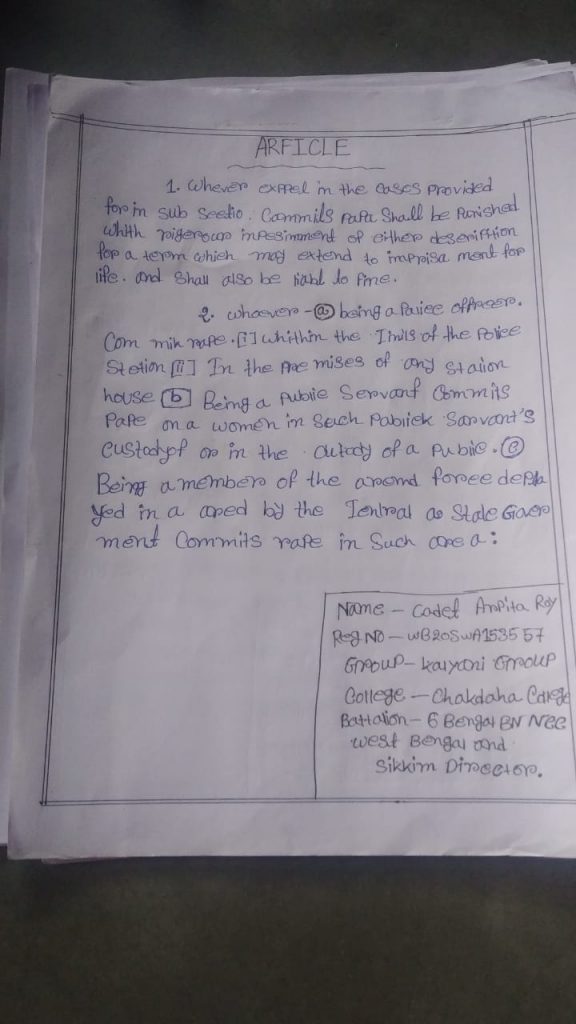 ARFICLE
1. Whever exprel in the cases provided
for in sub Seetio. Commils Papa Shall be Punished
Whith rigerour inpesimment of either deseriftion
for a term which may extend to imprisa ment for
life. and Shall also be liabl to fine.
2. whoever - (a) being a Paiee offeezer.
Com mik rape. [i] whithin the Timils of the Poliee
Stetion [ii] In the Pre mises of any Staiion
house [b] Being a Publie Servant Commits
Pape on a women in Seach Pabliek Sarvant's
Custodyof or in the Cutody of a Publie. (c)
Being a members of the aromd foree depla
yed in a ared by the Tentral as Stale Gover
ment Commits rape in Such are a:
Name - Cadet Anpita Roy
Reg No - WB20SWA153557
Group - Kalyani Group
College - Chakdaha College
Battalion - 6 Bengal BN NCC
West Bengal and
Sikkim Director.